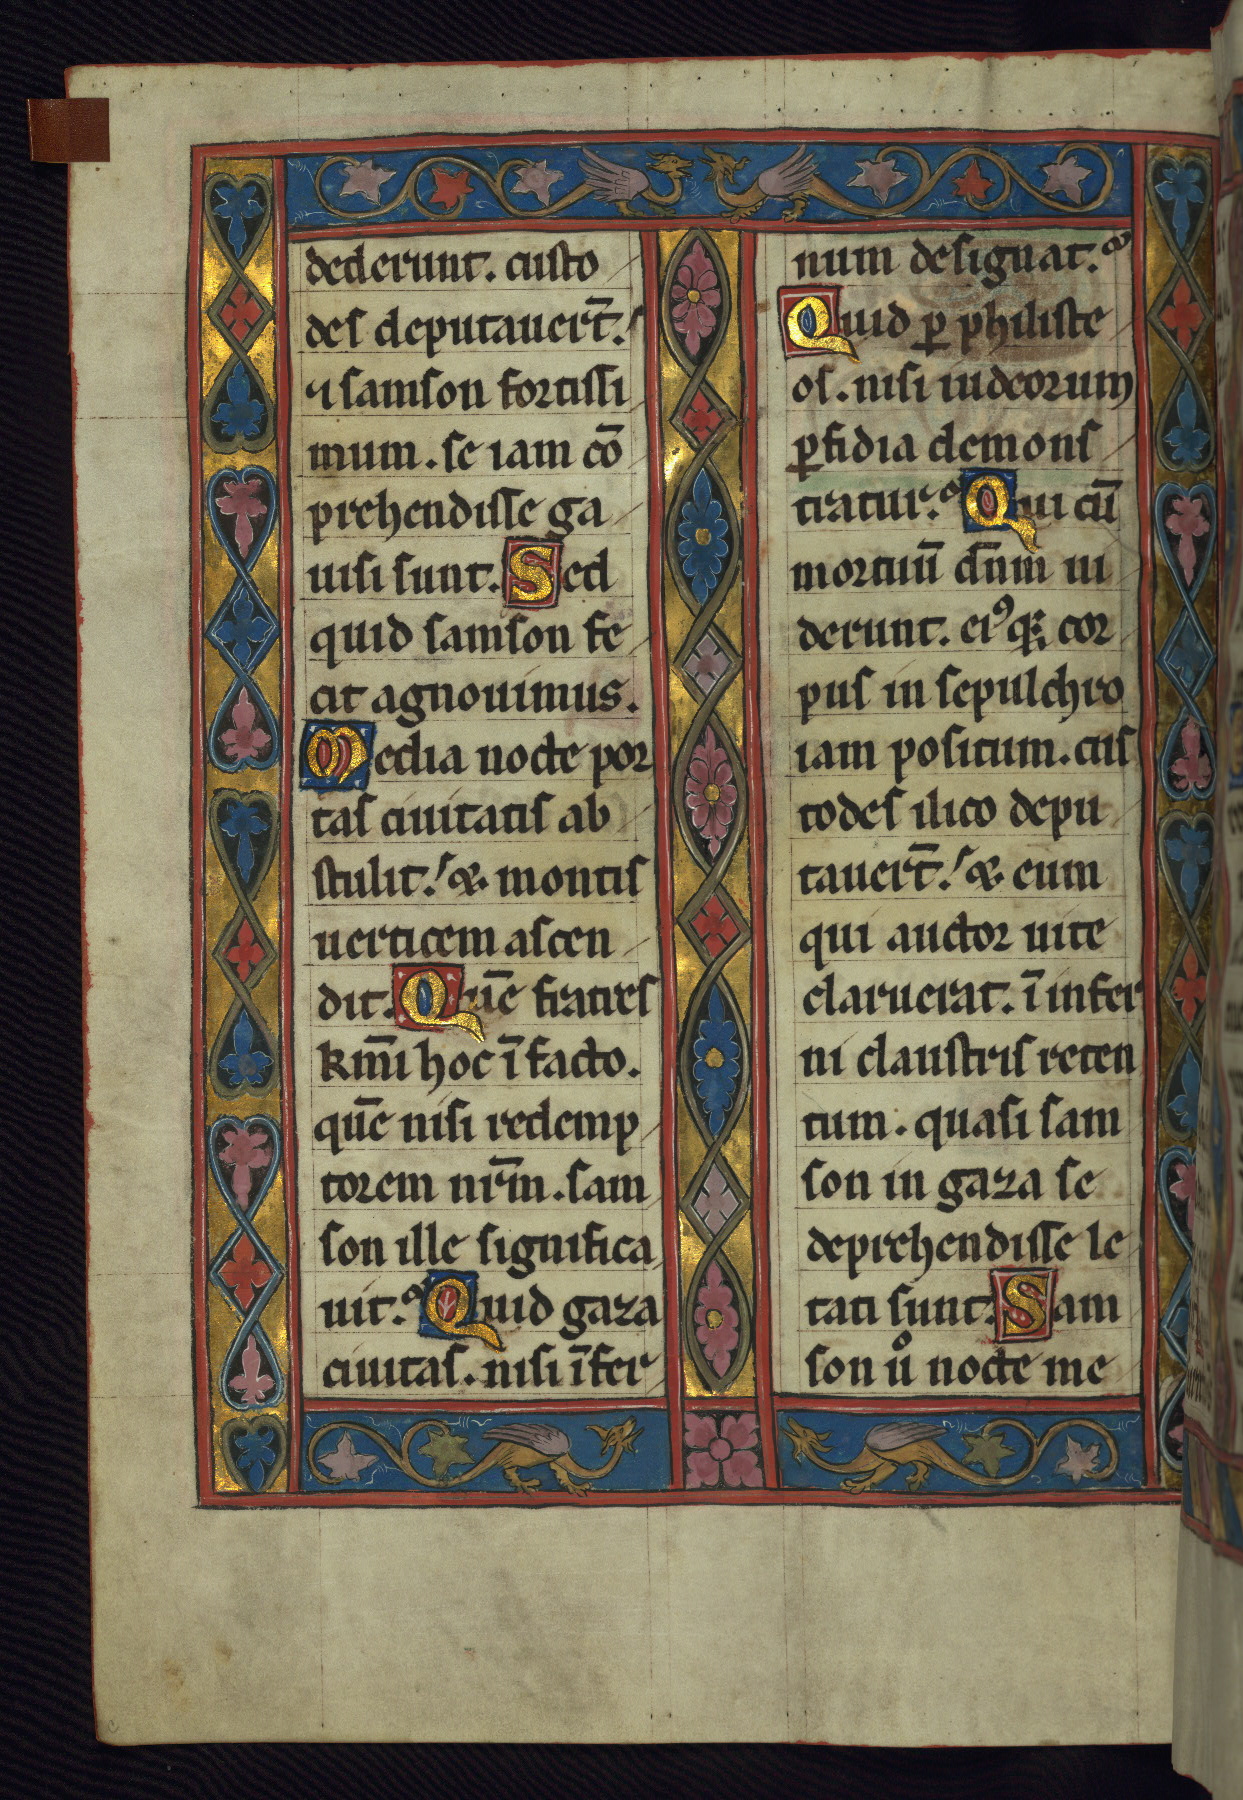 dederunt. custo
des deputauert̄.
⁊ samson fortissi
mum. se iam cō
prehendisse ga
uisi sunt. Sed
quid samson fe
cit agnouimus.
Media nocte por
tas ciuitatis ab
stulit. & montis
uerticem ascen
dit. Quē fratres
km̄i hoc ī facto.
quē nisi redemp
torem nr̄m. sam
son ille significa
uit. Quid gaza
ciuitas. nisi īfer
num designat.
Quid ꝑ philiste
os. nisi iudeorum
ꝑfidia demons
tratur. Qui cū
mortuū dn̄m ui
derunt. eiꝰq; cor
pus in sepulchro
iam positum. cus
todes ilico depu
tauert̄. & eum
qui auctor uite
claruerat. ī infer
ni claustris reten
tum. quasi sam
son in gaza se
deprehendisse le
tati sunt. Sam
son uͦ nocte me